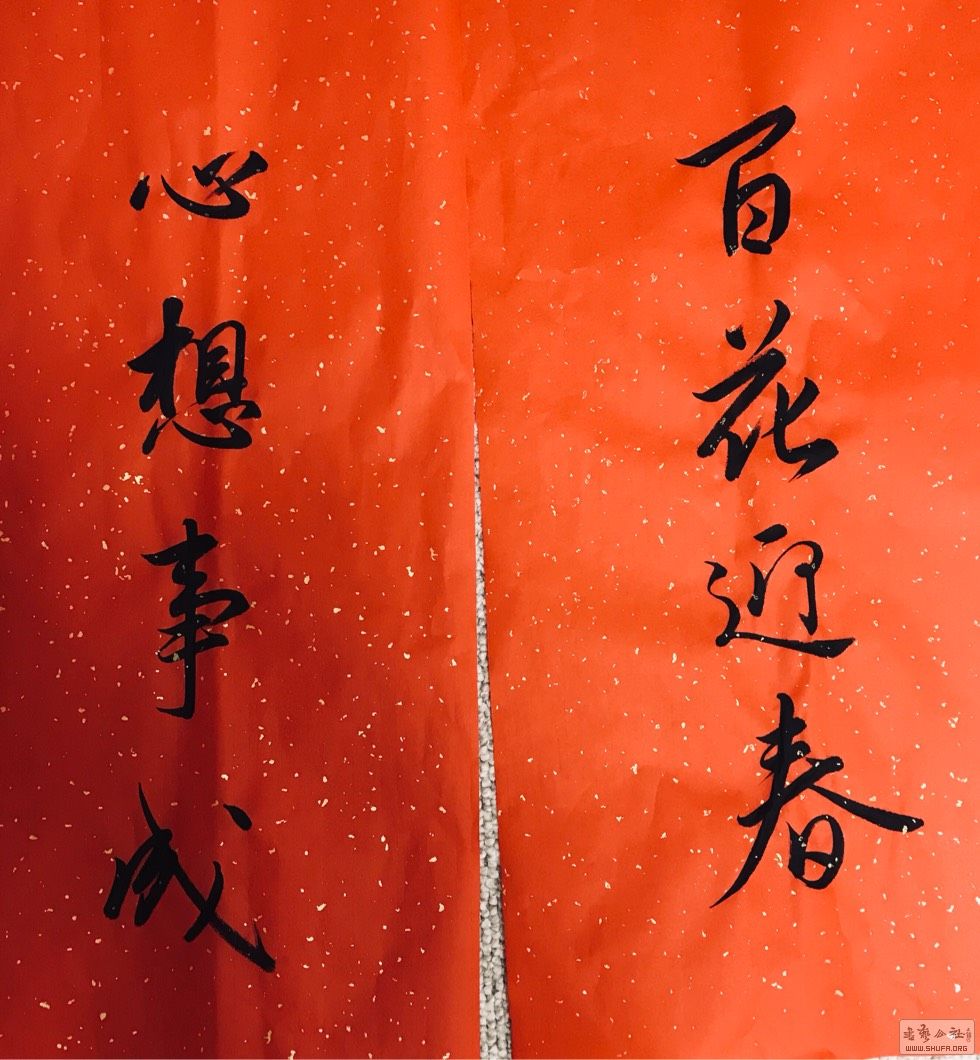 百花迎春
心想事成
书艺公社
WWW.SHUFA.ORG